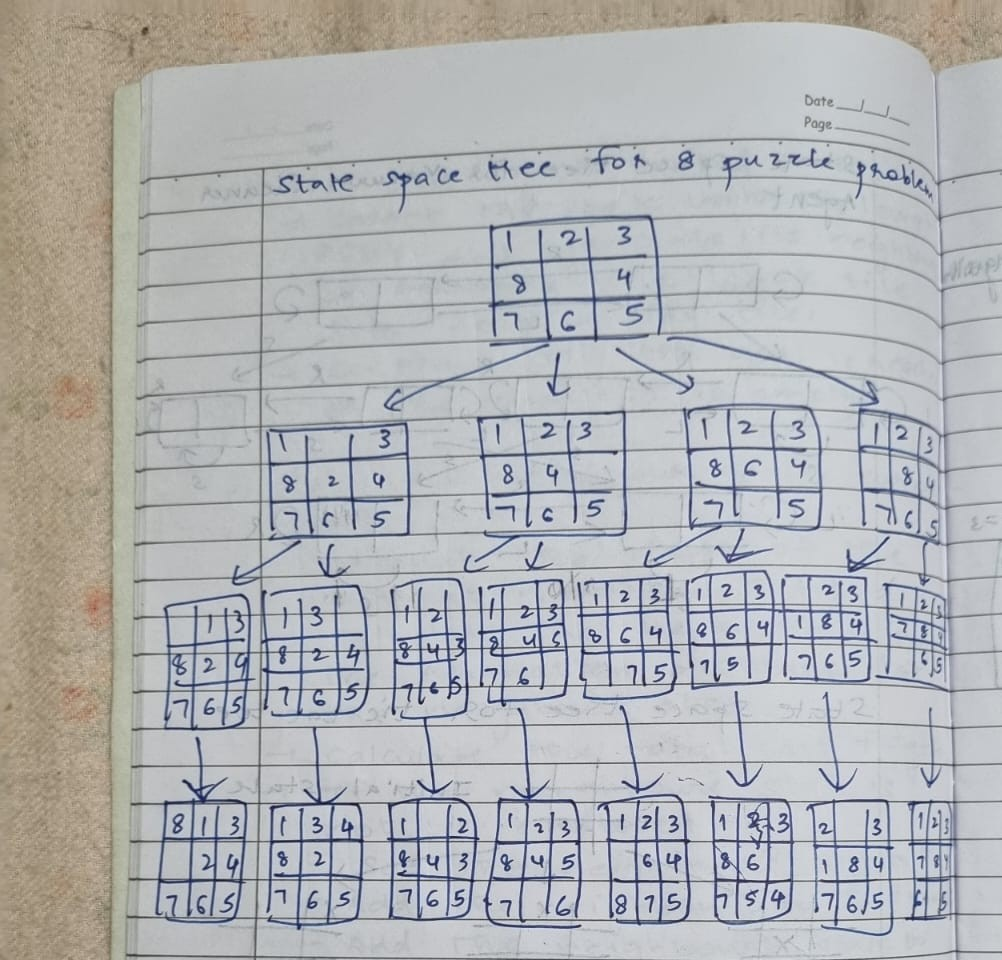 Date __/__/__
Page ______
State space tree for 8 puzzle problem
1 2 3
8 4
7 6 5
1 3
8 2 4
7 6 5
1 2 3
8 4
7 6 5
1 2 3
8 6 4
7 5
1 2 3
8 4
7 6 5
1 3
8 2 4
7 6 5
1 3
8 2 4
7 6 5
1 2
8 4 3
7 6 5
1 2 3
8 4 5
7 6
1 2 3
8 6 4
7 5
1 2 3
8 6 4
7 5
2 3
1 8 4
7 6 5
1 2 3
7 8 4
6 5
8 1 3
2 4
7 6 5
1 3 4
8 2
7 6 5
1 2
8 4 3
7 6 5
1 2 3
8 4 5
7 6
1 2 3
6 4
8 7 5
1 2 3
8 6
7 5 4
2 3
1 8 4
7 6 5
1 2 3
7 8 4
6 5